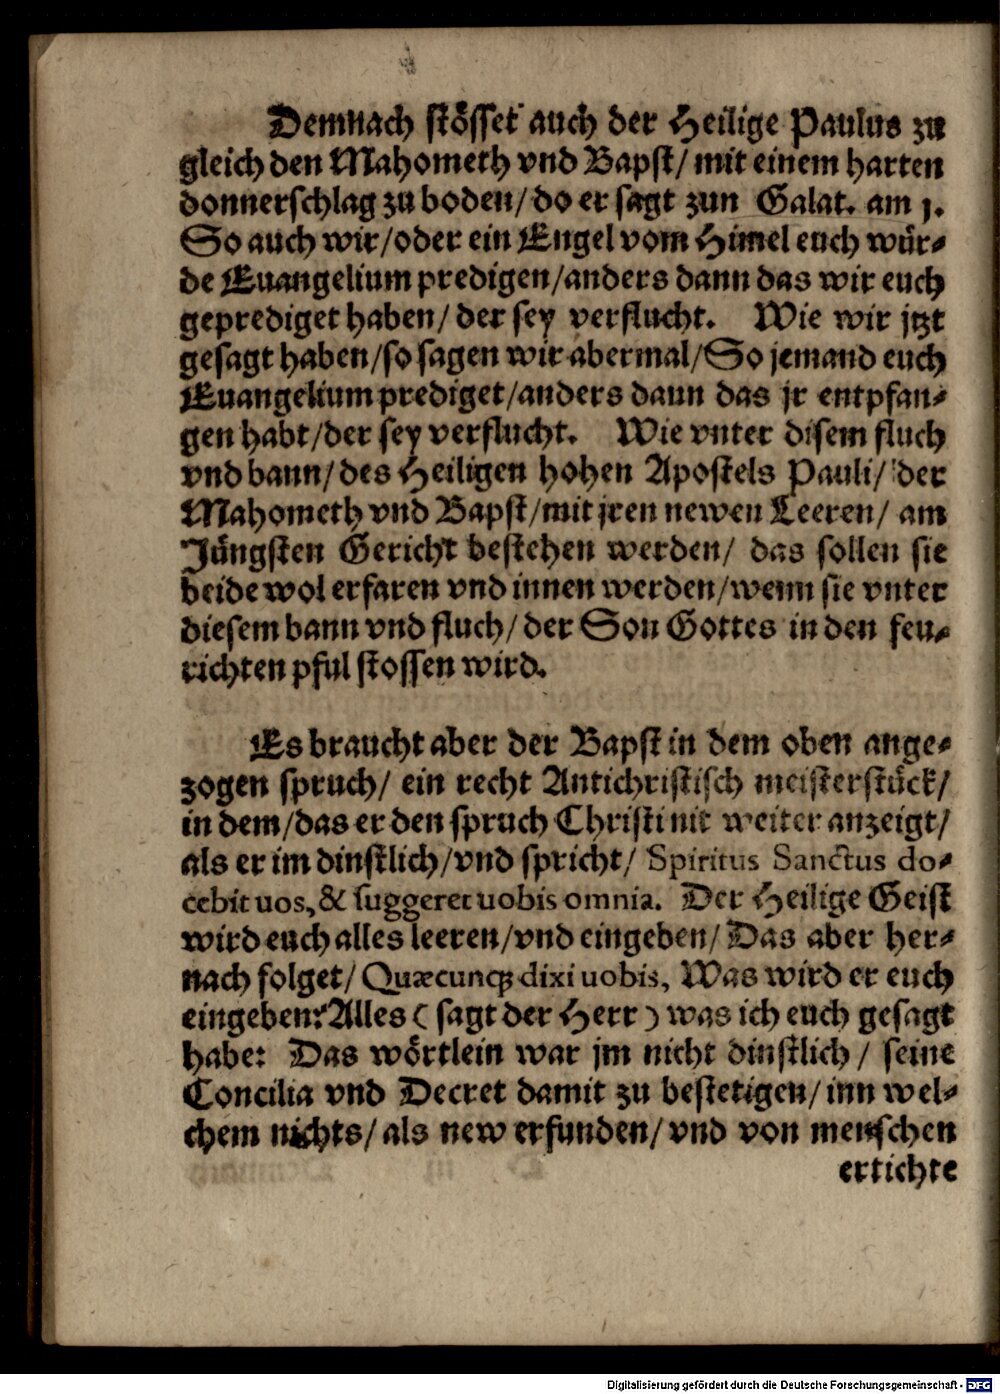 Demnach stösset auch der Heilige Paulus zu
gleich den Mahometh vnd Bapst/ mit einem harten
donnerschlag zu boden/ do er sagt zun Galat. am j.
So auch wir/ oder ein Engel vom Himel euch wür-
de Euangelium predigen/ anders dann das wir euch
geprediget haben/ der sey verflucht. Wie wir jtzt
gesagt haben/ so sagen wir abermal/ So jemand euch
Euangelium prediget/ anders dann das jr entpfan-
gen habt/ der sey verflucht. Wie vnter disem fluch
vnd bann/ des Heiligen hohen Apostels Pauli/ der
Mahometh vnd Bapst/ mit jren newen Leeren/ am
Jüngsten Gericht bestehen werden/ das sollen sie
beide wol erfaren vnd innen werden/ wenn sie vnter
diesem bann vnd fluch/ der Son Gottes in den feu-
richten pful stossen wird.
Es braucht aber der Bapst in dem oben ange-
zogen spruch/ ein recht Antichristisch meisterstück/
in dem/ das er den spruch Christi nit weiter anzeigt/
als er im dinstlich/ vnd spricht/ Spiritus Sanctus do-
cebit uos, & suggeret uobis omnia. Der Heilige Geist
wird euch alles leeren/ vnd eingeben/ Das aber her-
nach folget/ Quæcunqꝫ dixi uobis, Was wird er euch
eingeben? Alles ( sagt der Herr ) was ich euch gesagt
habe: Das wörtlein war jm nicht dinstlich / seine
Concilia vnd Decret damit zu bestetigen/ inn wel-
chem nichts/ als new erfunden/ vnd von menschen
ertichte
Digitalisierung gefördert durch die Deutsche Forschungsgemeinschaft - DFG